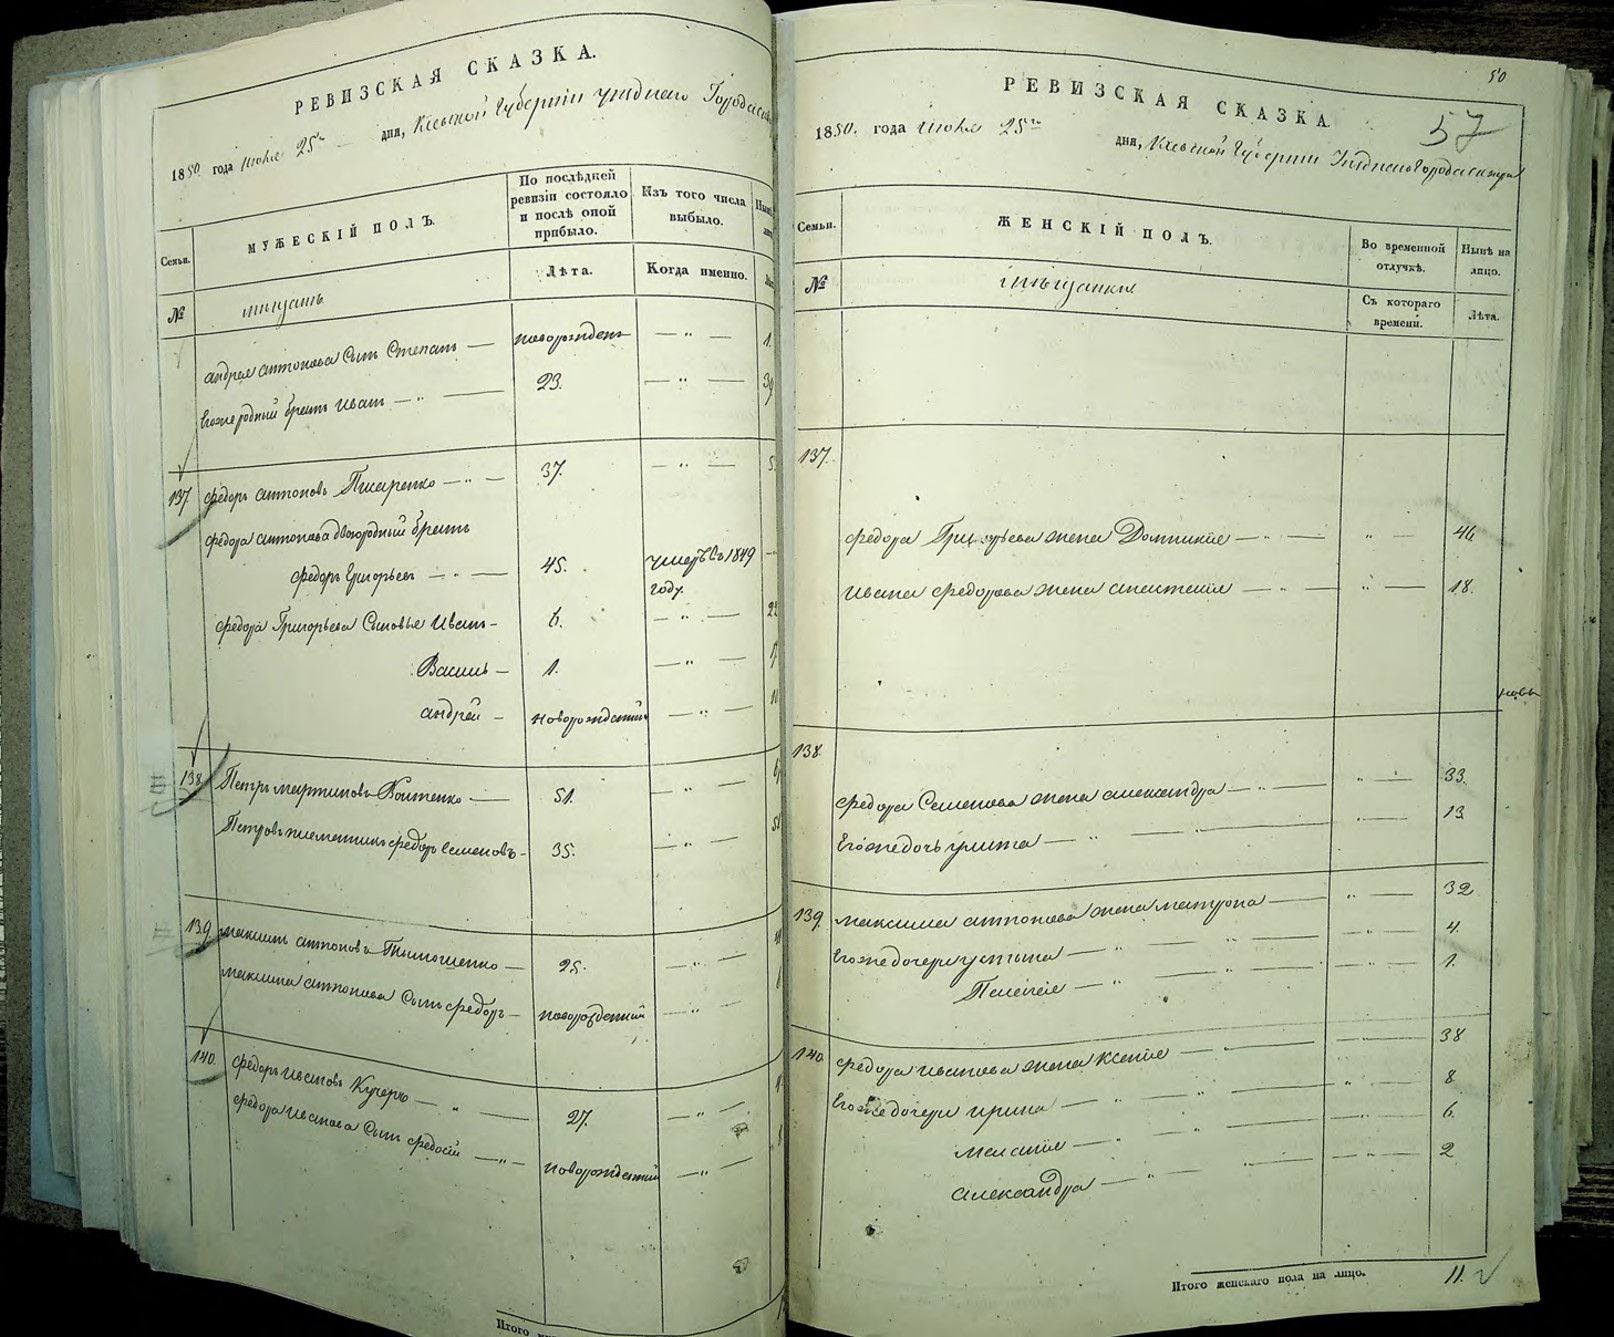 РЕВИЗСКАЯ СКАЗКА.
1850 года июля 25го дня, Кіевской Губерніи уѣзднаго Города
Семьи.
МУЖЕСКІЙ ПОЛЪ.
По послѣдней ревизіи состояло и послѣ оной прибыло.
Изъ того числа выбыло.
№
мѣщанъ
Лѣта.
Когда именно.
Андрея Антонова Сынъ Степанъ — новорожден — " — 1.
Егоже родный братъ Иванъ — " — 23. — " —
137 Федоръ Антоновъ Писаренко — " — 37. — " —
Федора Антонова двоюродный братъ
Федоръ Григорьевъ — " — 45. умеръ въ 1849
году.
Федора Григорьева Сыновья Иванъ — 6. — " — 22
Василь — 1. — " —
Андрей — новорожденный — " —
138 Петръ Мартиновъ Воитенко — 51. — " —
Петровъ племянникъ Федоръ Семеновъ — 35. — " —
139. Максимъ Антоновъ Тимошенко — 25. — " —
Максима Антонова Сынъ Федоръ — новорожденный — " —
140. Федоръ Ивановъ Кучерю — " — 27. — " —
Федора Иванова Сынъ Федосій — " — новорожденный — " —
Итого
50
РЕВИЗСКАЯ СКАЗКА.
57
1850. года июля 25го дня, Кіевской Губерніи Уѣзднаго Города
Семьи.
ЖЕНСКІЙ ПОЛЪ.
Во временной отлучкѣ.
Нынѣ на лицо.
№
мѣщанки
Съ котораго времени.
Лѣта.
137.
Федора Григорьева жена Домникія — " — " — 46
Ивана Федорова жена Анастасія — " — " — 18.
138.
Федора Семенова жена Александра — " — " — 33.
Егоже дочь Улита — " — " — 13.
139. Максима Антонова жена Матрона — " — 32
Егоже дочери Устина — " — " — 4.
Пелагія — " — " — 1.
140. Федора Иванова жена Ксенія — " — 38
Егоже дочери Ирина — " — " — 8
Меланія — " — " — 6.
Александра — " — " — 2
Итого женскаго пола на лицо. 11.